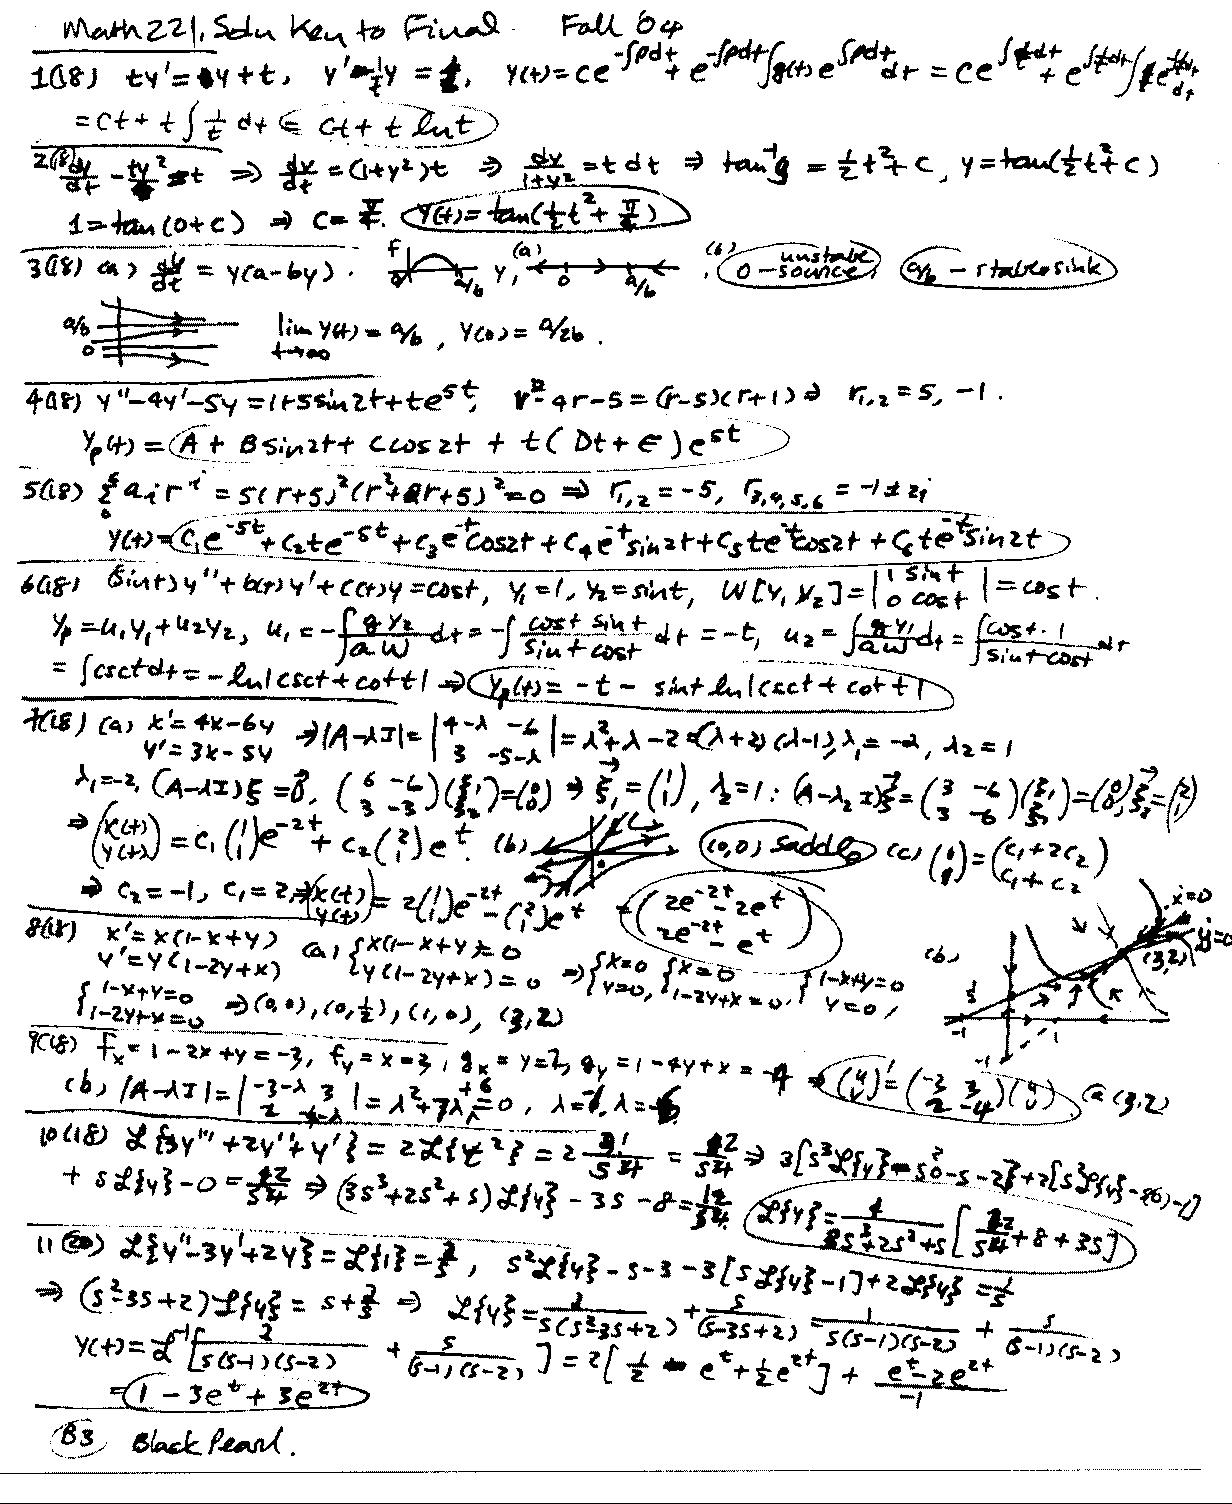 Math 221, Soln Key to Final Fall 04
1(18) ty' = y+t, y' - 1/t y = 1, y(t) = ce^{-∫pdt} + e^{-∫pdt}∫g(t)e^{∫pdt}dt = ce^{∫1/t dt} + e^{∫1/t dt}∫
= ct + t∫1/t dt = ct + t ln t
2(18) dy/dt - ty² = t ⇒ dy/dt = (1+y²)t ⇒ dy/(1+y²) = t dt ⇒ tan⁻¹y = ½t² + c, y = tan(½t² + c)
1 = tan(0+c) ⇒ c = π/4. y(t) = tan(½t² + π/4)
3(18) (a) dy/dt = y(a-by). f 0 a/b y, (a) 0 a/b. (b) 0 - unstable source, a/b - stable sink
a/b 0 lim t→∞ y(t) = a/b, y(0) = a/2b.
4(18) y''-4y'-5y = 1+5sin2t+te^{5t}, r²-4r-5 = (r-5)(r+1) ⇒ r₁,₂ = 5, -1.
y_p(t) = A + B sin2t + C cos2t + t(Dt+E)e^{5t}
5(18) Σ aᵢ rⁱ = 5(r+5)²(r²+2r+5)² = 0 ⇒ r₁,₂ = -5, r₃,₄,₅,₆ = -1±2i
y(t) = c₁e^{-5t} + c₂te^{-5t} + c₃e^{-t}cos2t + c₄e^{-t}sin2t + c₅te^{-t}cos2t + c₆te^{-t}sin2t
6(18) (sint)y''+b(t)y'+c(t)y = cost, y₁=1, y₂=sint, W[y₁ y₂] = |1 sint 0 cost| = cost.
y_p = u₁y₁+u₂y₂, u₁ = -∫ g y₂/aW dt = -∫ cost sint/sint cost dt = -t, u₂ = ∫ g y₁/aW dt = ∫ cost·1/sint cost dt
= ∫csct dt = -ln|csct+cott| ⇒ y_p(t) = -t - sint ln|csct+cott|
7(18) (a) x' = 4x-6y y' = 3x-5y ⇒ |A-λI| = |4-λ -6 3 -5-λ| = λ²+λ-2 = (λ+2)(λ-1), λ₁ = -2, λ₂ = 1
λ₁=-2, (A-λI)ξ = 0, (6 -6 3 -3)(ξ₁ ξ₂) = (0 0) ⇒ ξ₁ = (1 1), λ₂=1: (A-λ₂I)ξ = (3 -6 3 -6)(ξ₁ ξ₂) = (0 0), ξ₂ = (2 1)
⇒ (x(t) y(t)) = c₁(1 1)e^{-2t} + c₂(2 1)e^{t}. (b) (0,0) saddle (c) (0 1) = (c₁+2c₂ c₁+c₂)
⇒ c₂=-1, c₁=2, ⇒ (x(t) y(t)) = 2(1 1)e^{-2t} - (2 1)e^{t} = (2e^{-2t}-2e^{t} 2e^{-2t}-e^{t})
8(18) x' = x(1-x+y) y' = y(1-2y+x) (a) {x(1-x+y)=0 y(1-2y+x)=0 ⇒ {x=0 y=0, {x=0 1-2y+x=0, {1-x+y=0 y=0,
{1-x+y=0 1-2y+x=0 ⇒ (0,0), (0,½), (1,0), (3,2)
(b) ẋ=0 ẏ=0 (3,2) ½ -1 1 -1
9(18) f_x = 1-2x+y = -3, f_y = x = 3, g_x = y = 2, g_y = 1-4y+x = -4 ⇒ (u v)' = (-3 3 2 -4)(u v) @ (3,2)
(b) |A-λI| = |-3-λ 3 2 -4-λ| = λ²+7λ+6 = 0, λ=-1, λ=-6
10(18) ℒ{3y'''+2y''+y'} = 2ℒ{t²} = 2 ⇒ 3[s³ℒ{y}
+ sℒ{y}-0 = ⇒ (3s³+2s²+s)ℒ{y} - 3s - 8 = ℒ{y} = [ +8+3s]
11(20) ℒ{y''-3y'+2y} = ℒ{1} = , s²ℒ{y}-s-3-3[sℒ{y}-1]+2ℒ{y} =
⇒ (s²-3s+2)ℒ{y} = s + 2/s ⇒ ℒ{y} = 2/s(s²-3s+2) + s/(s²-3s+2) = 1/s(s-1)(s-2) + s/(s-1)(s-2)
y(t) = ℒ⁻¹[2/s(s-1)(s-2) + s/(s-1)(s-2)] = 2[½ - e^t + ½e^{2t}] + (e^t-2e^{2t})/-1
= 1 - 3e^t + 3e^{2t}
B3 Black Pearl.